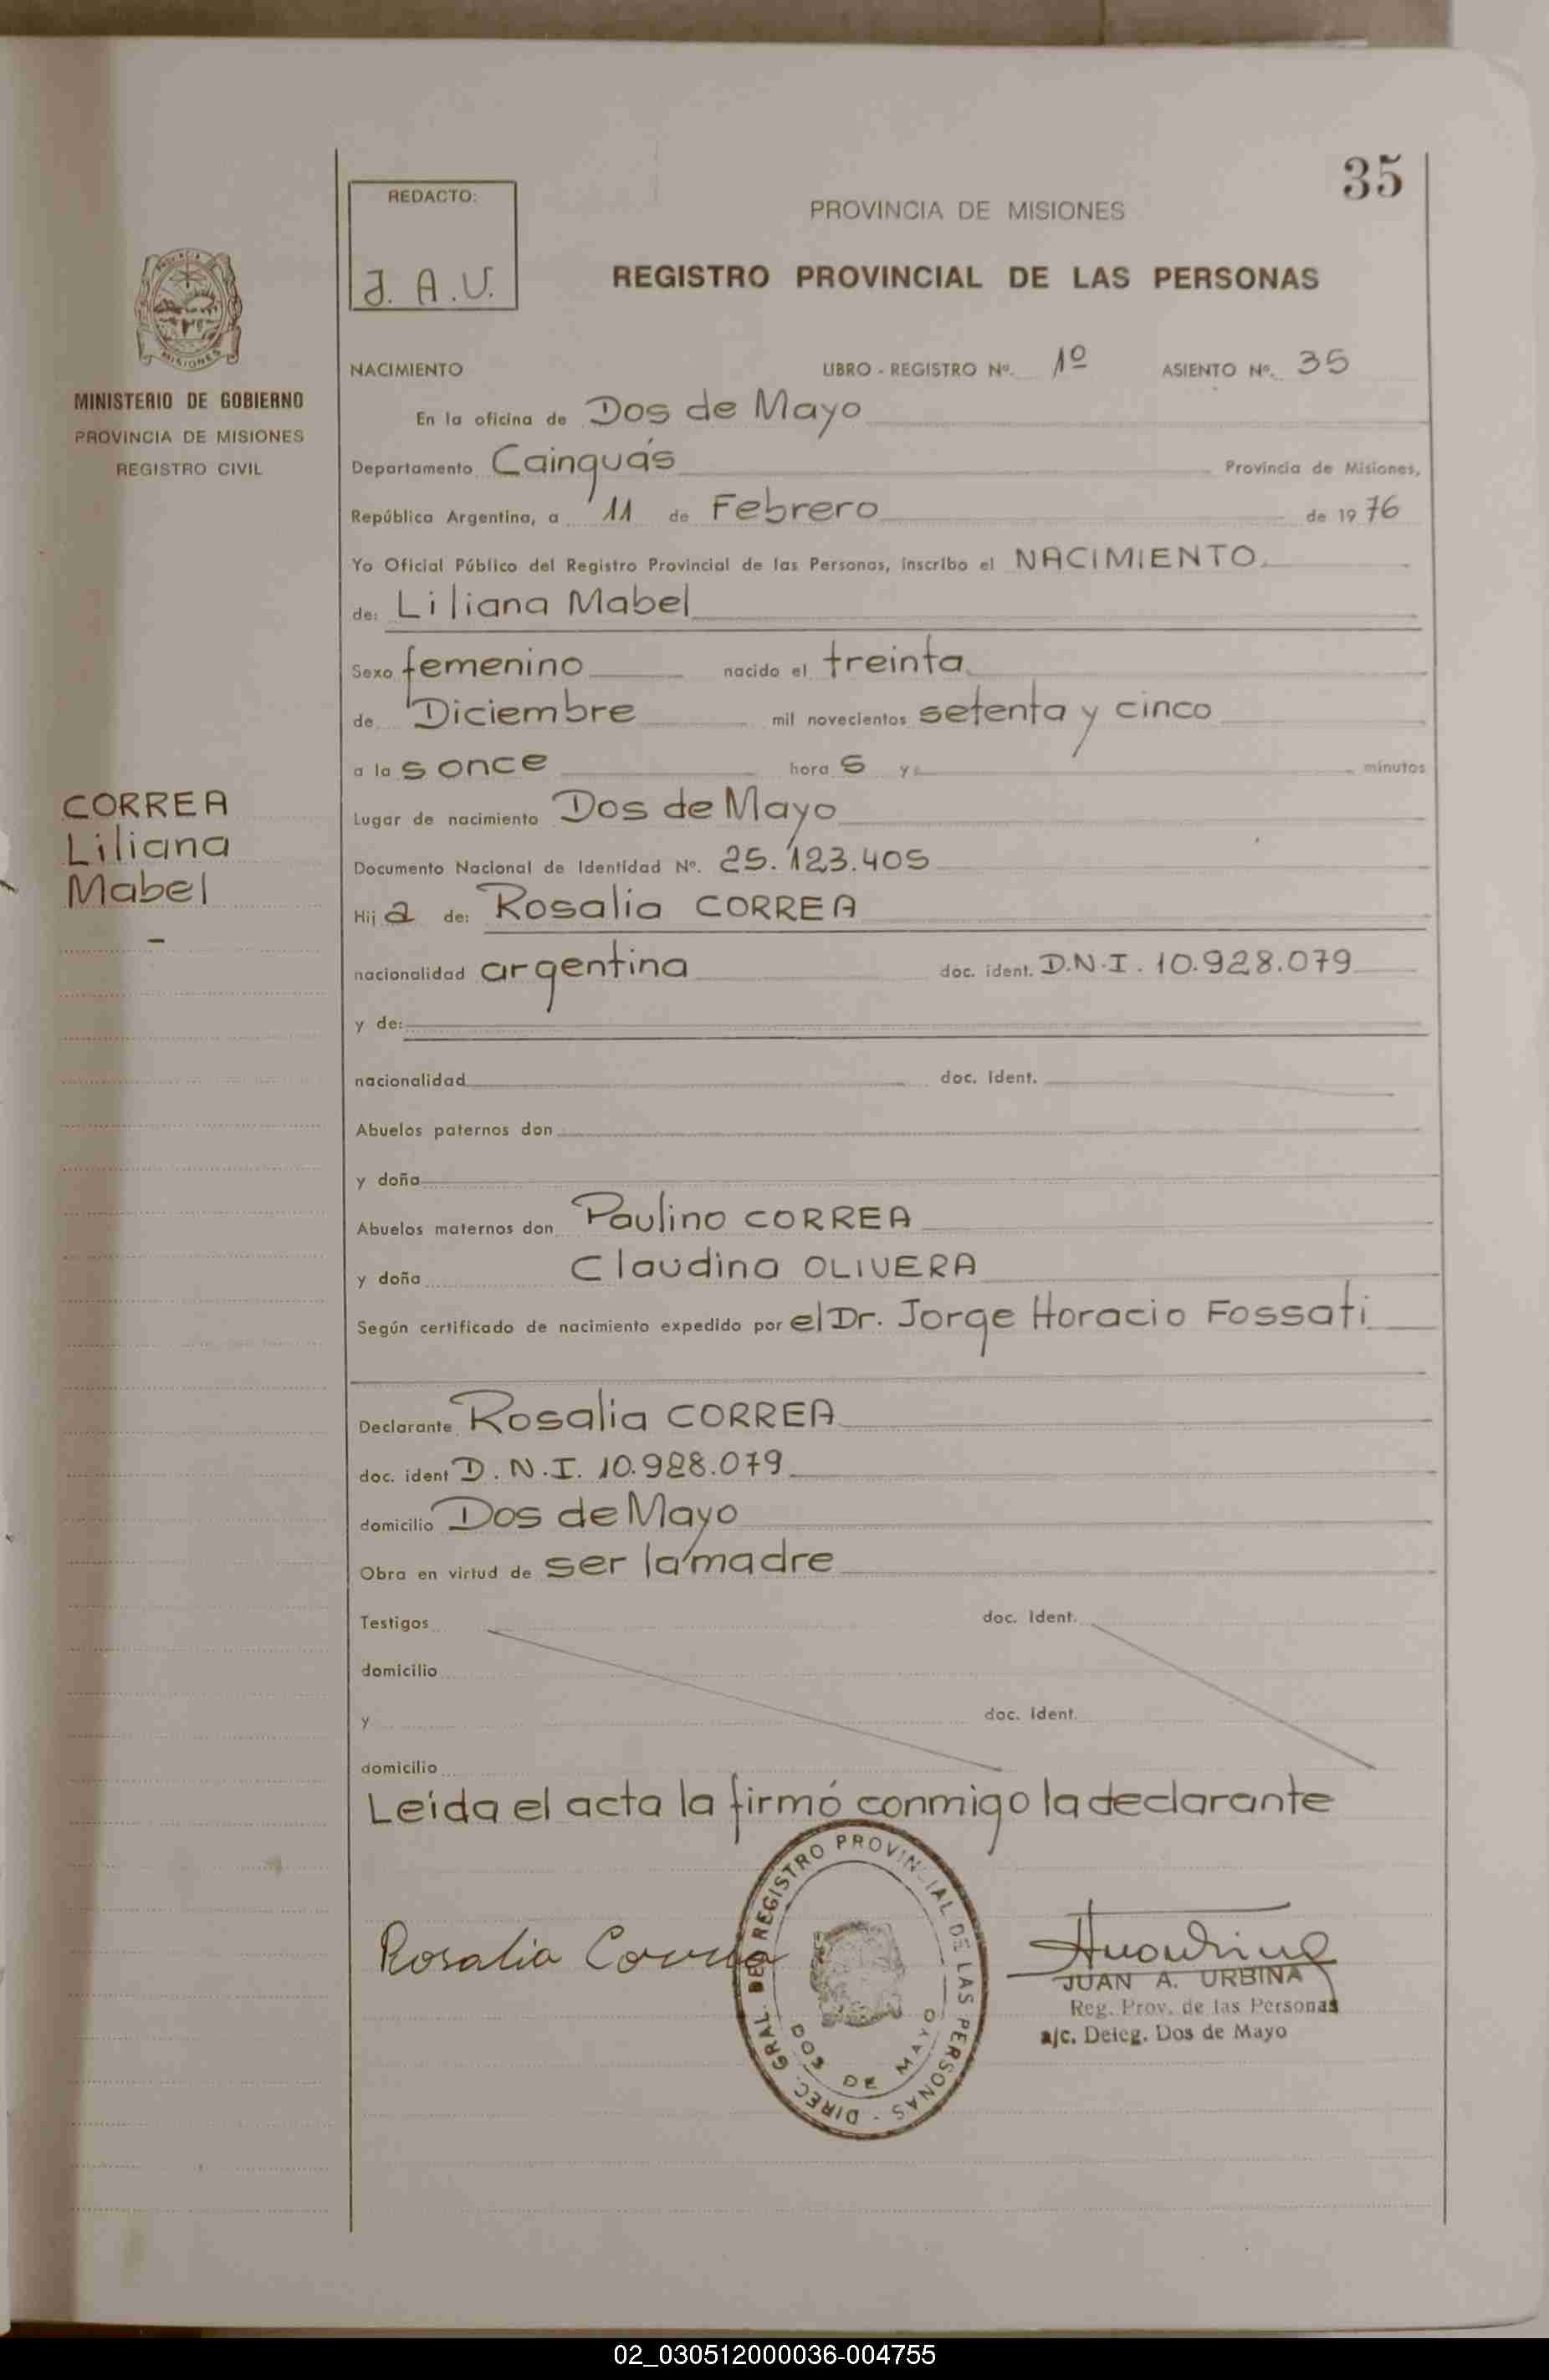 35
REDACTO:
J. A. U.
PROVINCIA DE MISIONES
REGISTRO PROVINCIAL DE LAS PERSONAS
MISIONES
MINISTERIO DE GOBIERNO
PROVINCIA DE MISIONES
REGISTRO CIVIL
NACIMIENTO LIBRO - REGISTRO Nº. 1º ASIENTO Nº. 35
En la oficina de Dos de Mayo
Departamento Cainguás Provincia de Misiones,
República Argentina, a 11 de Febrero de 1976
Yo Oficial Público del Registro Provincial de las Personas, inscribo el NACIMIENTO
de: Liliana Mabel
Sexo femenino nacido el treinta
de Diciembre mil novecientos setenta y cinco
a las once horas y minutos
CORREA
Liliana
Mabel
Lugar de nacimiento Dos de Mayo
Documento Nacional de Identidad Nº. 25.123.405
Hija de: Rosalia CORREA
nacionalidad argentina doc. ident. D.N.I. 10.928.079
y de:
nacionalidad doc. ident.
Abuelos paternos don
y doña
Abuelos maternos don Paulino CORREA
y doña Claudina OLIVERA
Según certificado de nacimiento expedido por el Dr. Jorge Horacio Fossati
Declarante Rosalia CORREA
doc. ident D.N.I. 10.928.079
domicilio Dos de Mayo
Obra en virtud de ser la madre
Testigos doc. ident.
domicilio
y doc. ident.
domicilio
Leida el acta la firmó conmigo la declarante
Rosalia Correa
DIREC. GRAL. DEL REGISTRO PROVINCIAL DE LAS PERSONAS -
DOS DE MAYO
JUAN A. URBINA
Reg. Prov. de las Personas
a/c. Deleg. Dos de Mayo
02_030512000036-004755